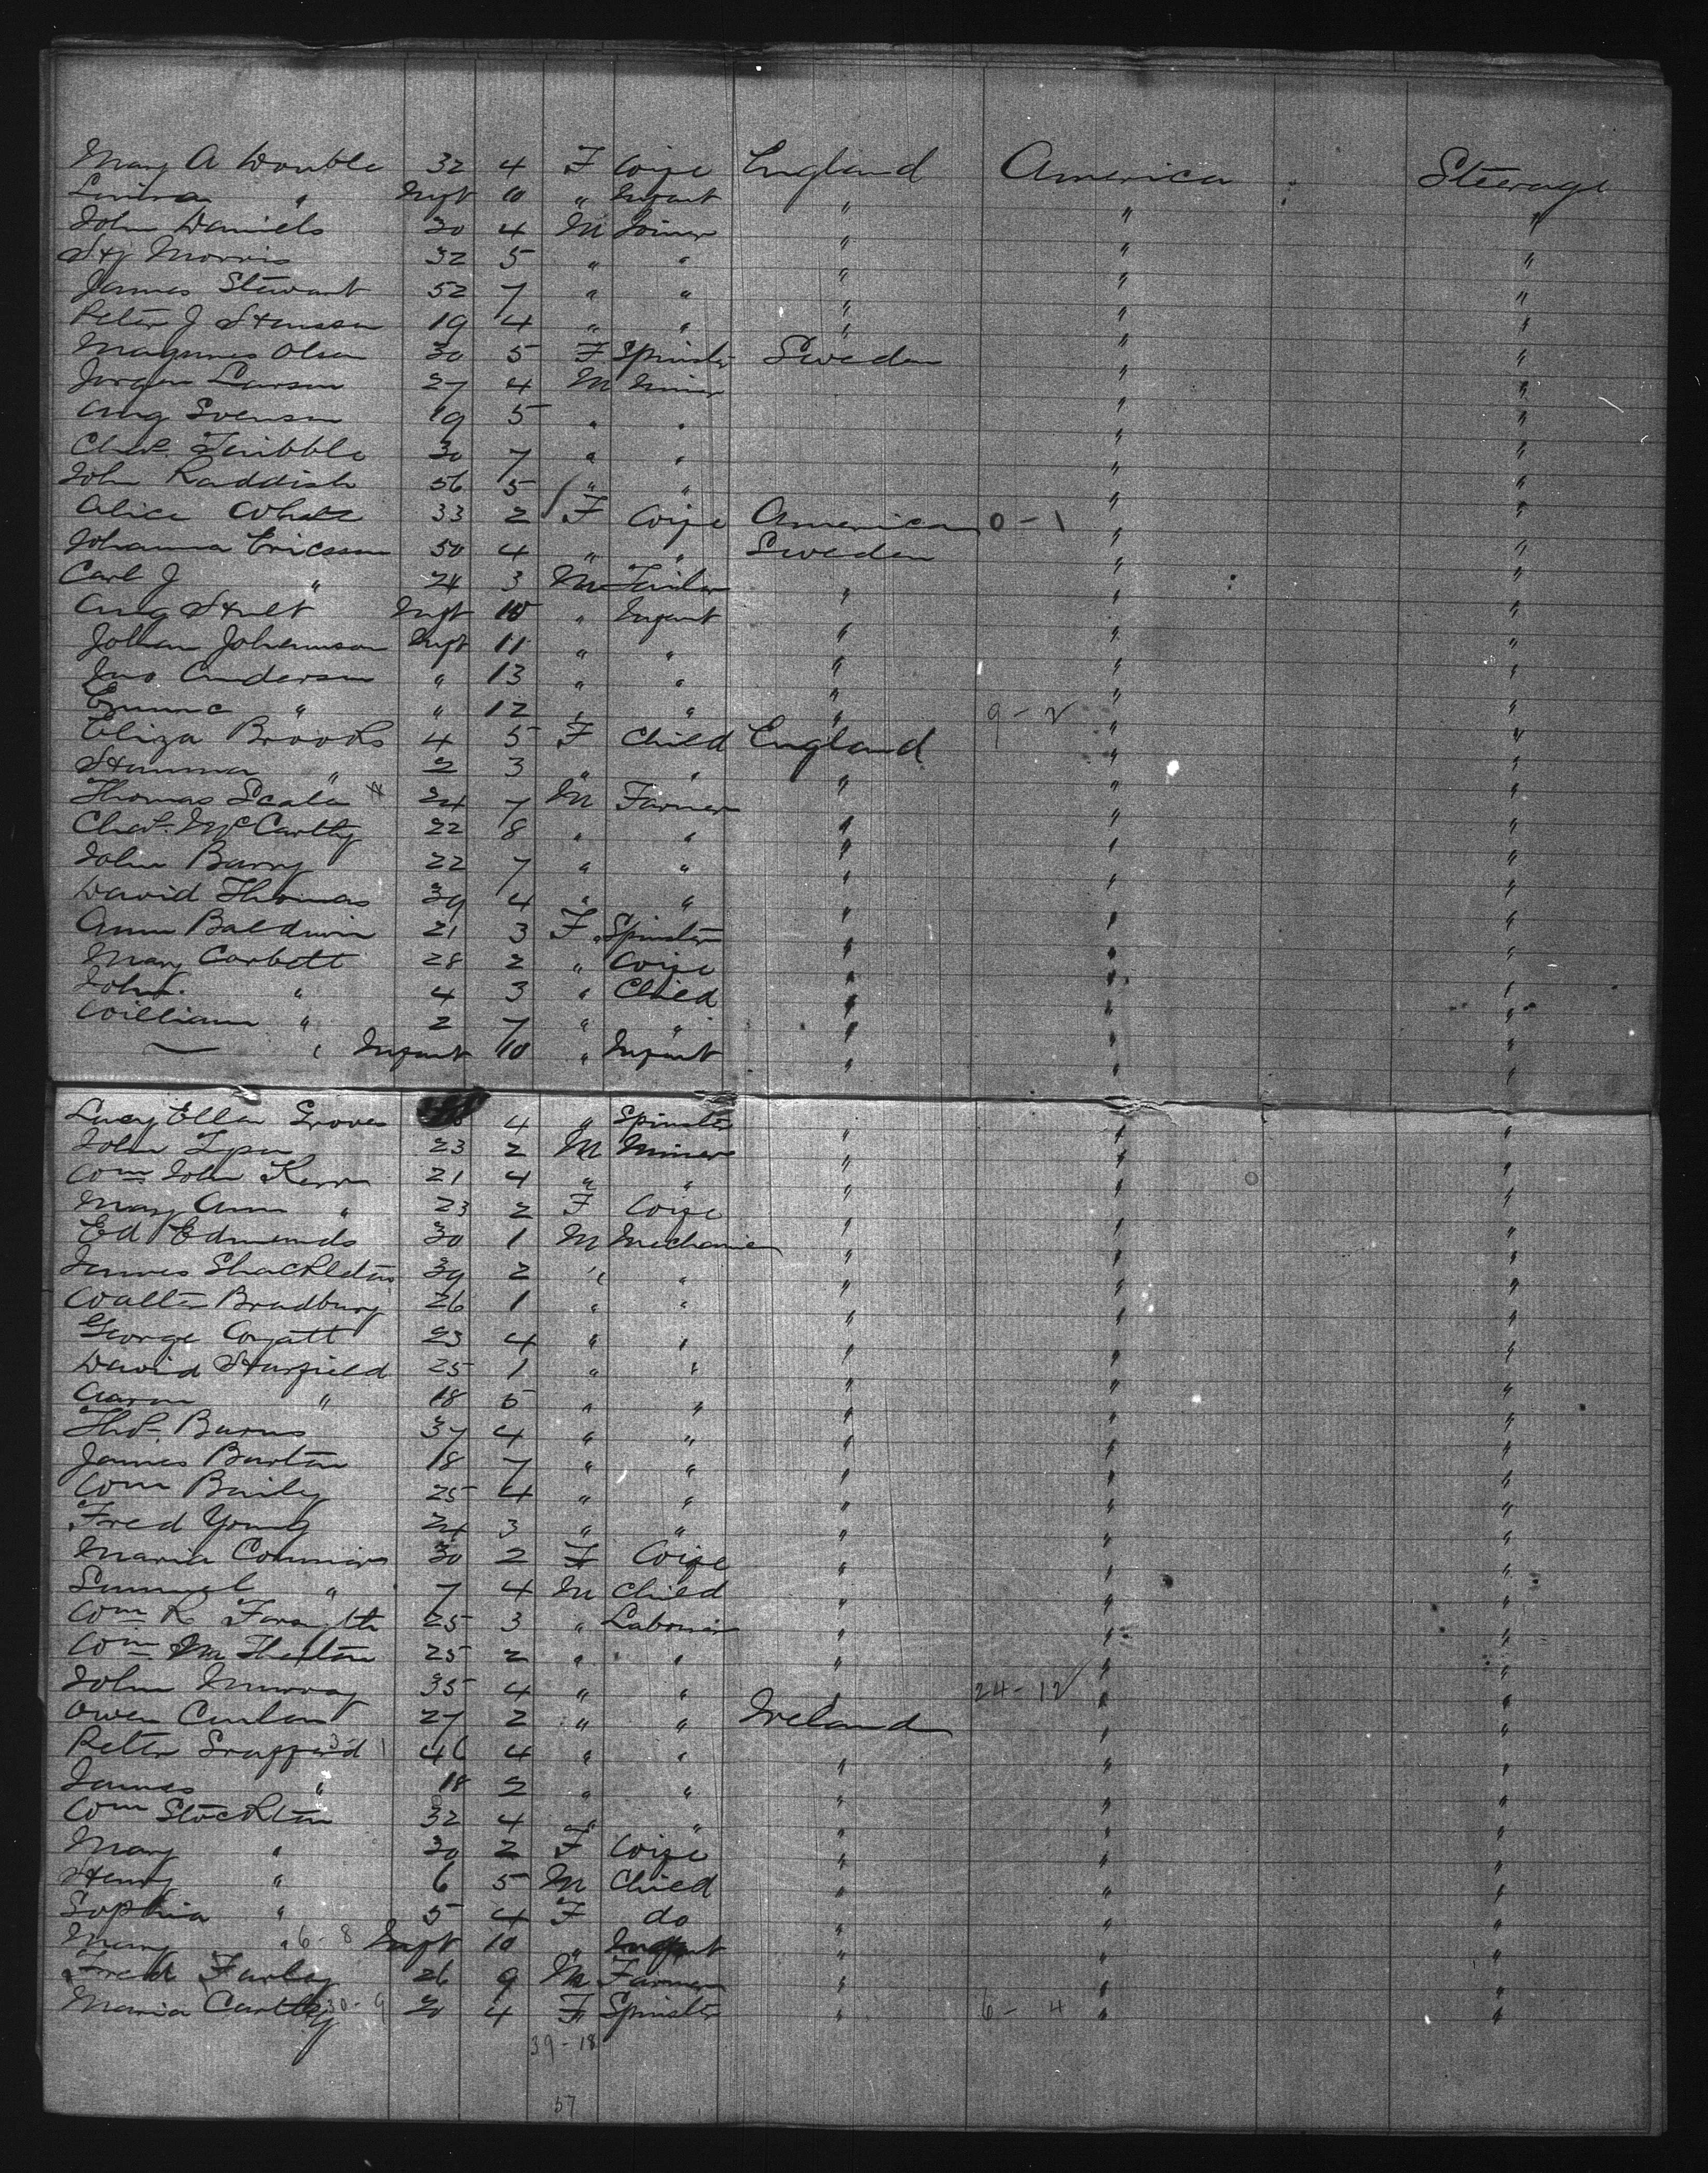 Mary A Wouble 32 4 F Wife England America Steerage
Levina " Inft 10 " Infant " " "
John Daniels 30 4 M Joiner " " "
Hy Morris 32 5 " " " " "
James Stewart 52 7 " " " " "
Peter J Hansson 19 4 " " " " "
Magnnes Olson 30 5 F Spinster Sweden " "
Jorgen Larson 27 4 M Miner " "
Aug Svenson 19 5 " " " "
Chas. Tribble 30 7 " " " "
John Raddish 56 5 " " " "
Alice White 33 2 F Wife America 0-1 " "
Johanna Ericsson 50 4 " " Sweden " "
Carl J " 24 3 M Tailor " " "
Aug Hult Inft 10 " Infant " " "
Johan Johannson Inft 11 " " " " "
Jno Anderson " 13 " " " " "
Emma " " 12 " " " 9-2 " "
Eliza Brooks 4 5 F Child England " "
Hanna " 2 3 " " " " "
Thomas Scale 24 7 M Farmer " " "
Chas. McCarthy 22 8 " " " " "
John Barry 22 7 " " " " "
David Thomas 39 4 " " " " "
Ann Baldwin 21 3 F Spinster " " "
Mary Corbett 28 2 " Wife " " "
John " 4 3 " Child " " "
William " 2 7 " " " " "
— " Infant 10 " Infant " " "
Lucy Ellen Groves 4 " Spinster " " "
John 23 2 M Miner " " "
Wm John Kerr 21 4 " " " " "
Mary Ann " 23 2 F Wife " "
Ed Edmunds 30 1 M Mechanic " " "
James Shackleton 39 2 " " " " "
Walter Bradbury 26 1 " " " " "
George Wyatt 23 4 " " " " "
David Harfield 25 1 " " " " "
Aaron " 18 5 " " " " "
Thos. Burns 37 4 " " " " "
James Barton 18 7 " " " " "
Wm Baily 25 4 " " " " "
Fred Young 24 3 " " " " "
Maria Connors 30 2 F Wife " " "
Samuel " 7 4 M Child " " "
Wm R Forsyth 25 3 " Laborier " " "
Wm Thexton 25 2 " " " " "
John Murray 35 4 " " " 24-12 " "
Owen Conlan 27 2 " " Ireland " "
Peter Srafford 46 4 " " " " "
James " 18 2 " " " " "
Wm Stockton 32 4 " " " " "
Mary " 30 2 F Wife " " "
Henry " 6 5 M Child " " "
Sophia " 5 4 F do " " "
Mary " 6-8 Inft 10 " Infant " " "
Fred Farley 26 9 M Farmer " " "
Maria Carthy 30-9 20 4 F Spinster " 6-4 " "
39-18
57